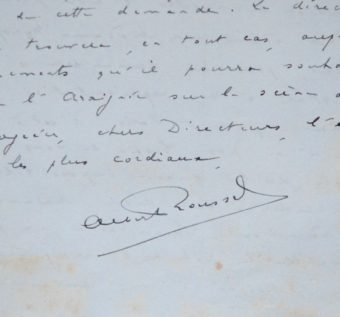 de cette demande. Le direc
trouvera, en tout cas, aup
ements qu'il pourra souha
l'Araignée sur la scène d
chers Directeurs, l'e
les plus cordiaux.
Albert Roussel